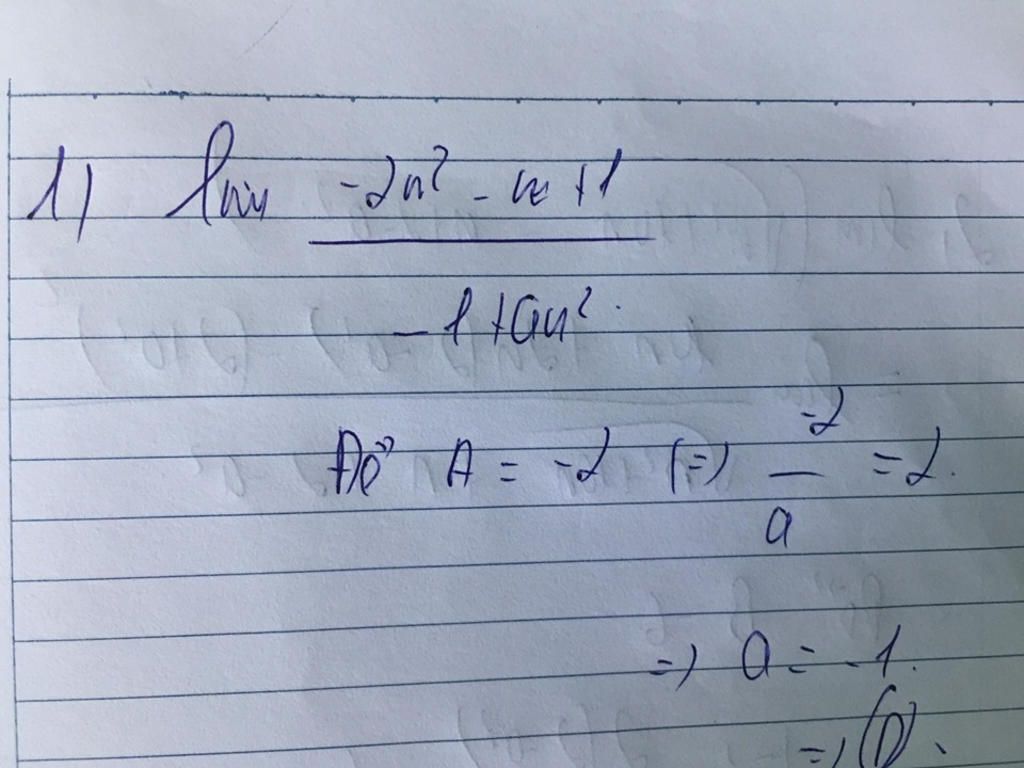 1) lim (-2n² - n + 1) / (-1 + an²)
Để A = -2 (=) -2/a = 2.
=) a = -1.
=) (D).